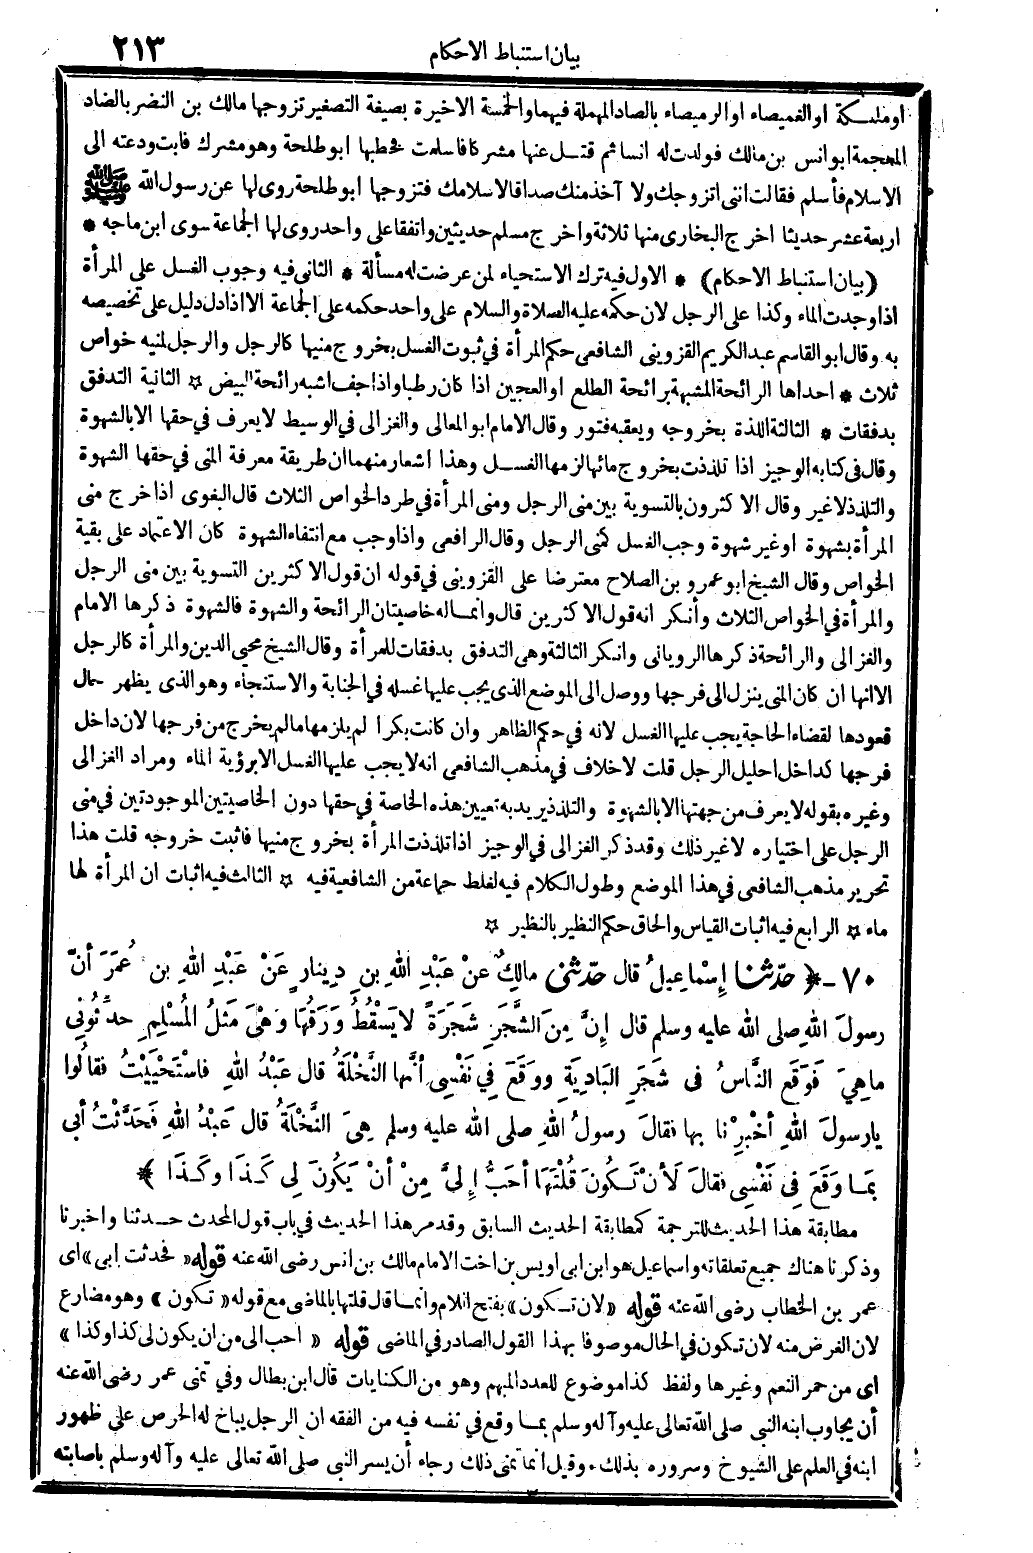 بيان استنباط الاحكام ٢١٣
او مليكة او الغميصاء او الرميصاء بالصاد المهملة فيهما والخمسة الاخيرة بصيغة التصغير تزوجها مالك بن النضر بالضاد
المعجمة ابو انس بن مالك فولدت له انسا ثم قتل عنها مشركا فاسلمت فخطبها ابو طلحة وهو مشرك فابت ودعته الى
الاسلام فأسلم فقالت انى اتزوجك ولا آخذ منك صداقا لاسلامك فتزوجها ابو طلحة روى لها عن رسول الله ﷺ
اربعة عشر حديثا اخرج البخارى منها ثلاثة واخرج مسلم حديثين واتفقا على واحد روى لها الجماعة سوى ابن ماجه *
(بيان استنباط الاحكام) * الاول فيه ترك الاستحياء لمن عرضت له مسألة * الثانى فيه وجوب الغسل على المرأة
اذا وجدت الماء وكذا على الرجل لان حكمه عليه الصلاة والسلام على واحد حكمه على الجماعة الا اذا دل دليل على تخصيصه
به وقال ابو القاسم عبد الكريم القزوينى الشافعى حكم المرأة فى ثبوت الغسل بخروج منيها كالرجل والرجل لمنيه خواص
ثلاث * احداها الرائحة المشبهة برائحة الطلع او العجين اذا كان رطبا واذا جف اشبه رائحة البيض ☆ الثانية التدفق
بدفقات * الثالثة اللذة بخروجه ويعقبه فتور وقال الامام ابو المعالى والغزالى فى الوسيط لا يعرف فى حقها الا بالشهوة
وقال فى كتابه الوجيز اذا تلذذت بخروج مائها لزمها الغسل وهذا اشعار منهما ان طريقة معرفة المنى فى حقها الشهوة
والتلذذ لا غير وقال الاكثرون بالتسوية بين منى الرجل ومنى المرأة فى طرد الخواص الثلاث قال البغوى اذا خرج منى
المرأة بشهوة او غير شهوة وجب الغسل كمنى الرجل وقال الرافعى واذا وجب مع انتفاء الشهوة كان الاعتماد على بقية
الخواص وقال الشيخ ابو عمرو بن الصلاح معترضا على القزوينى فى قوله ان قول الاكثرين التسوية بين منى الرجل
والمرأة فى الخواص الثلاث وأنكر انه قول الاكثرين قال وانما له خاصيتان الرائحة والشهوة فالشهوة ذكرها الامام
والغزالى والرائحة ذكرها الرويانى وانكر الثالثة وهى التدفق بدفقات للمرأة وقال الشيخ محيى الدين والمرأة كالرجل
الا انها ان كان المنى ينزل الى فرجها ووصل الى الموضع الذى يجب عليها غسله فى الجنابة والاستنجاء وهو الذى يظهر حال
قعودها لقضاء الحاجة يجب عليها الغسل لانه فى حكم الظاهر وان كانت بكرا لم يلزمها مالم يخرج من فرجها لان داخل
فرجها كداخل احليل الرجل قلت لا خلاف فى مذهب الشافعى انه لا يجب عليها الغسل الا برؤية الماء ومراد الغزالى
وغيره بقوله لا يعرف من جهتها الا بالشهوة والتلذذ يريد به تعيين هذه الخاصة فى حقها دون الخاصيتين الموجودتين فى منى
الرجل على اختياره لا غير ذلك وقد ذكر الغزالى فى الوجيز اذا تلذذت المرأة بخروج منيها فاثبت خروجه قلت هذا
تحرير مذهب الشافعى فى هذا الموضع وطول الكلام فيه لغلط جماعة من الشافعية فيه ☆ الثالث فيه اثبات ان المرأة لها
ماء ☆ الرابع فيه اثبات القياس والحاق حكم النظير بالنظير ☆
٧٠ - ﴿ حدّثنا إِسْماعِيلُ قال حدّثنى مالِكٌ عنْ عَبْدِ اللهِ بنِ دِينارٍ عَنْ عَبْدِ اللهِ بنِ عُمَرَ أنَّ
رسولَ اللهِ صلى الله عليه وسلم قال إِنَّ مِنَ الشَّجَرِ شَجَرَةً لا يَسْقُطُ وَرَقُها وَهْىَ مَثَلُ المُسْلِمِ حدِّثُونِى
ما هِىَ فَوَقَعَ النَّاسُ فى شَجَرِ البَادِيَةِ ووَقَعَ فِى نَفْسِى أنَّها النَّخْلَةُ قال عَبْدُ اللهِ فاسْتَحْيَيْتُ فقالُوا
يارسولَ اللهِ أخْبِرْنا بها فقالَ رسولُ اللهِ صلى الله عليه وسلم هِىَ النَّخْلَةُ قال عَبْدُ اللهِ فَحَدَّثْتُ أبى
بِمَا وَقَعَ فِى نَفْسِى فقالَ لَأنْ تَكُونَ قُلْتَهَا أحَبُّ إِلَىَّ مِنْ أنْ يَكُونَ لِى كَذَا وكَذَا ﴾*
مطابقة هذا الحديث للترجمة كمطابقة الحديث السابق وقد مر هذا الحديث فى باب قول المحدث حدثنا واخبرنا
وذكرنا هناك جميع تعلقاته واسماعيل هو ابن ابى اويس بن اخت الامام مالك بن انس رضى الله عنه قوله «فحدثت ابى» اى
عمر بن الخطاب رضى الله عنه قوله «لان تكون» بفتح اللام وانما قال قلتها بالماضى مع قوله «تكون» وهو مضارع
لان الغرض منه لان تكون فى الحال موصوفا بهذا القول الصادر فى الماضى قوله «احب الى من ان يكون لى كذا وكذا»
اى من حمر النعم وغيرها ولفظ كذا موضوع للعدد المبهم وهو من الكنايات قال ابن بطال وفى تمنى عمر رضى الله عنه
أن يجاوب ابنه النبى صلى الله تعالى عليه وآله وسلم بما وقع فى نفسه فيه من الفقه ان الرجل يباح له الحرص على ظهور
ابنه فى العلم على الشيوخ وسروره بذلك. وقيل انما تمنى ذلك رجاء أن يسر النبى صلى الله تعالى عليه وآله وسلم باصابته